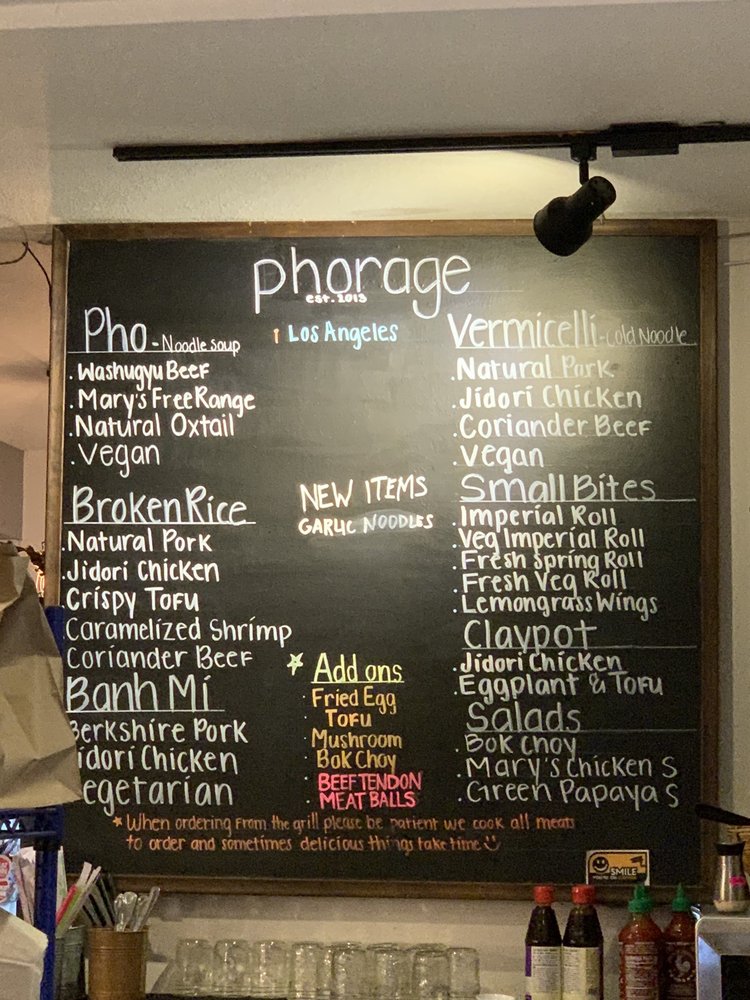 phorage
est. 2013
Los Angeles
Pho - Noodle Soup
. Washugyu Beef
. Mary's Free Range
. Natural Oxtail
. Vegan
Broken Rice
. Natural Pork
. Jidori Chicken
Crispy Tofu
Caramelized Shrimp
Coriander Beef
Banh Mi
Berkshire Pork
Jidori Chicken
Vegetarian
NEW ITEMS
GARLIC NOODLES
Add ons
. Fried Egg
. Tofu
. Mushroom
. Bok Choy
. BEEF TENDON
. MEAT BALLS
Vermicelli - Cold Noodle
. Natural Pork
. Jidori Chicken
. Coriander Beef
. Vegan
Small Bites
. Imperial Roll
. Veg Imperial Roll
. Fresh Spring Roll
. Fresh Veg Roll
. Lemongrass Wings
Claypot
. Jidori Chicken
. Eggplant & Tofu
Salads
. Bok Choy
. Mary's Chicken S
. Green Papaya S
* When ordering from the grill please be patient we cook all meats
to order and sometimes delicious things take time
SMILE